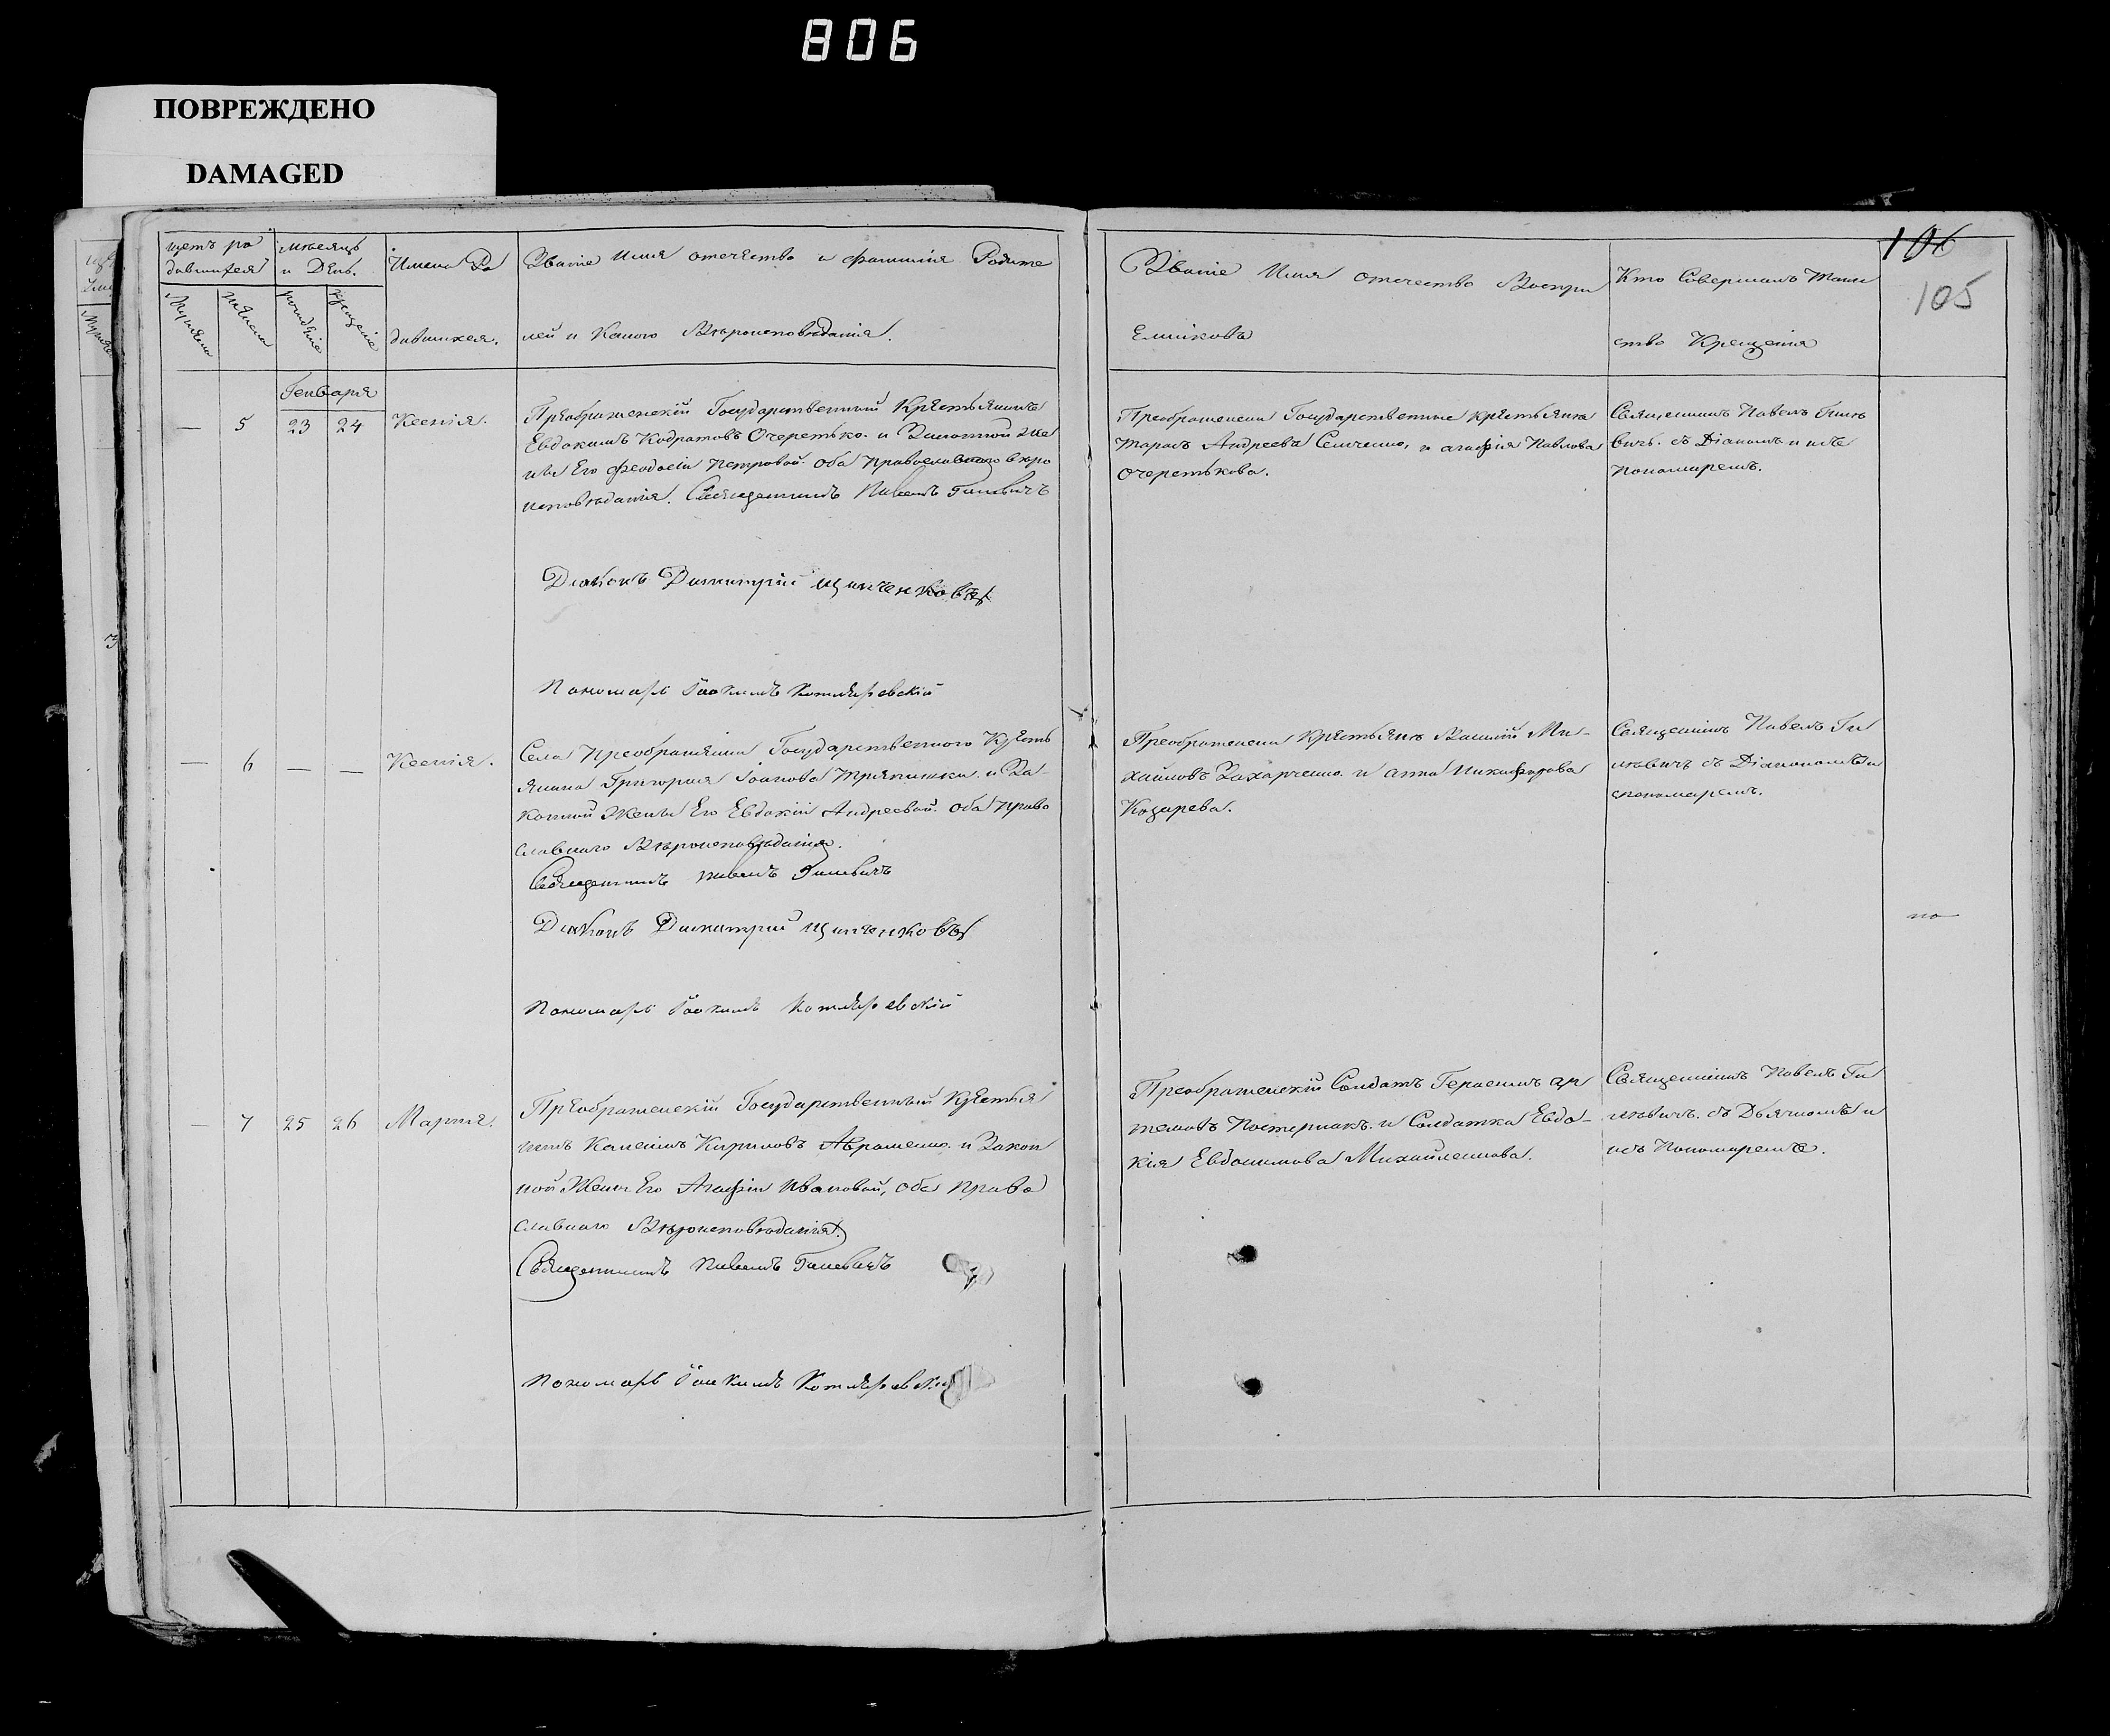 806
ПОВРЕЖДЕНО
DAMAGED
щетъ ро
дившихся
мѣсяцъ
и День.
Имена Ро
дившихся.
Званіе Имя отечество и фамилія Родите
лей и Какого Вѣроисповѣданія.
рожденіе
крещеніе
Званіе Имя отечество Воспри
Емниковъ
Кто Совершалъ Таин
ство Крещенія
106
105
Генваря
— 5 23 24 Ксенія.
Преображенскій Государственный Крестьянинъ
Евдокимъ Кодратовъ Очеретько. и Законной Же
ны Его Феодосіи Петровой. оба Православнаго вѣро
исповѣданія. Священникъ Павелъ Гилевичъ
Діаконъ Димитрій Щипченковъ
Пономарь Іоакимъ Котляревскій
Преображенски Государственные Крестьяне
Тарасъ Андреевъ Семченко, и агафія Павлова
Очеретькова.
Священникъ Павелъ Гиле
вичъ. съ Діакономъ и
Пономаремъ.
— 6 — — Ксенія.
Села Преображенки Государственнаго Кресть
янина Григорія Іоанова Тряпишки. и За-
конной Жены Его Евдокіи Андреевой. оба право
славнаго Вѣроисповѣданія.
Священникъ Павелъ Гилевичъ
Діаконъ Димитрій Щипченковъ
Пономарь Іоакимъ Котляревскій
Преображенски Крестьяне Василій Ми-
хайловъ Захарченко. и анна Никифорова
Козарева.
Священникъ Павелъ Ги
левичъ съ Діакономъ и
пономаремъ.
— 7 25 26 Марія.
Преображенскій Государственный Крестья
нинъ Кириловъ Авраменко. и Закон
ной Жены Его Агафіи Ивановой, оба Право
славнаго Вѣроисповѣданія.
Священникъ Павелъ Гилевичъ
Пономарь Іоакимъ Котляревскій
Преображенскій Солдатъ Герасимъ ар
темовъ Постернакъ. и Солдатка Евдо-
кія Евдокимова Михайленкова.
Священникъ Павелъ Ги
левичъ. съ Дьячкомъ и
Пономаремъ.